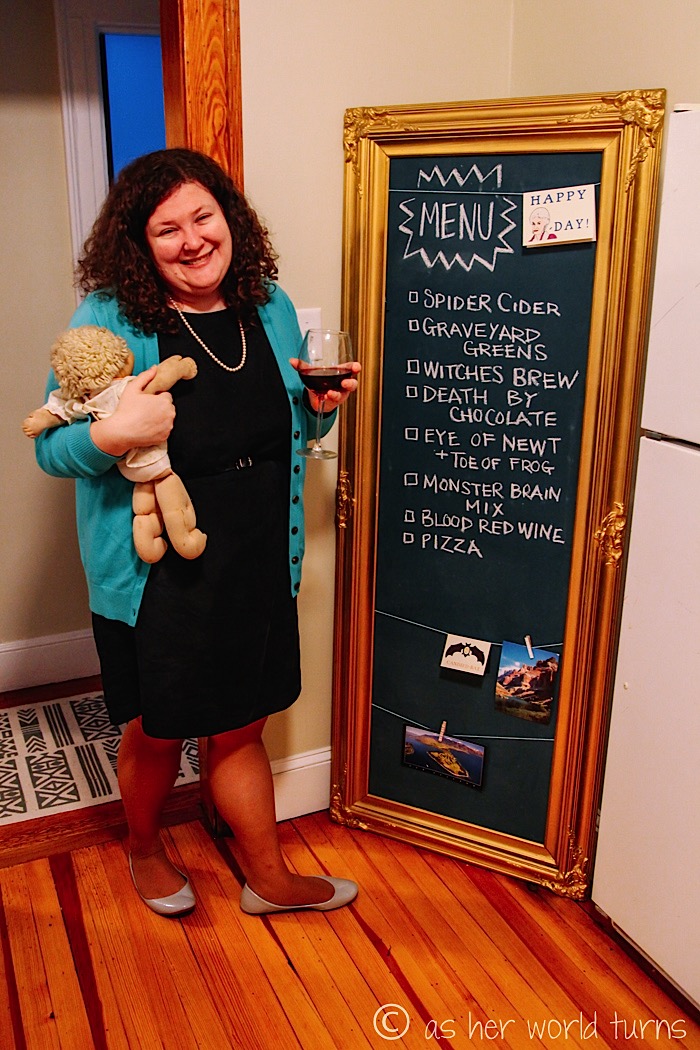 MENU
HAPPY
DAY!
SPIDER CIDER
GRAVEYARD
GREENS
WITCHES BREW
DEATH BY
CHOCOLATE
EYE OF NEWT
+ TOE OF FROG
MONSTER BRAIN
MIX
BLOOD RED WINE
PIZZA
© as her world turns